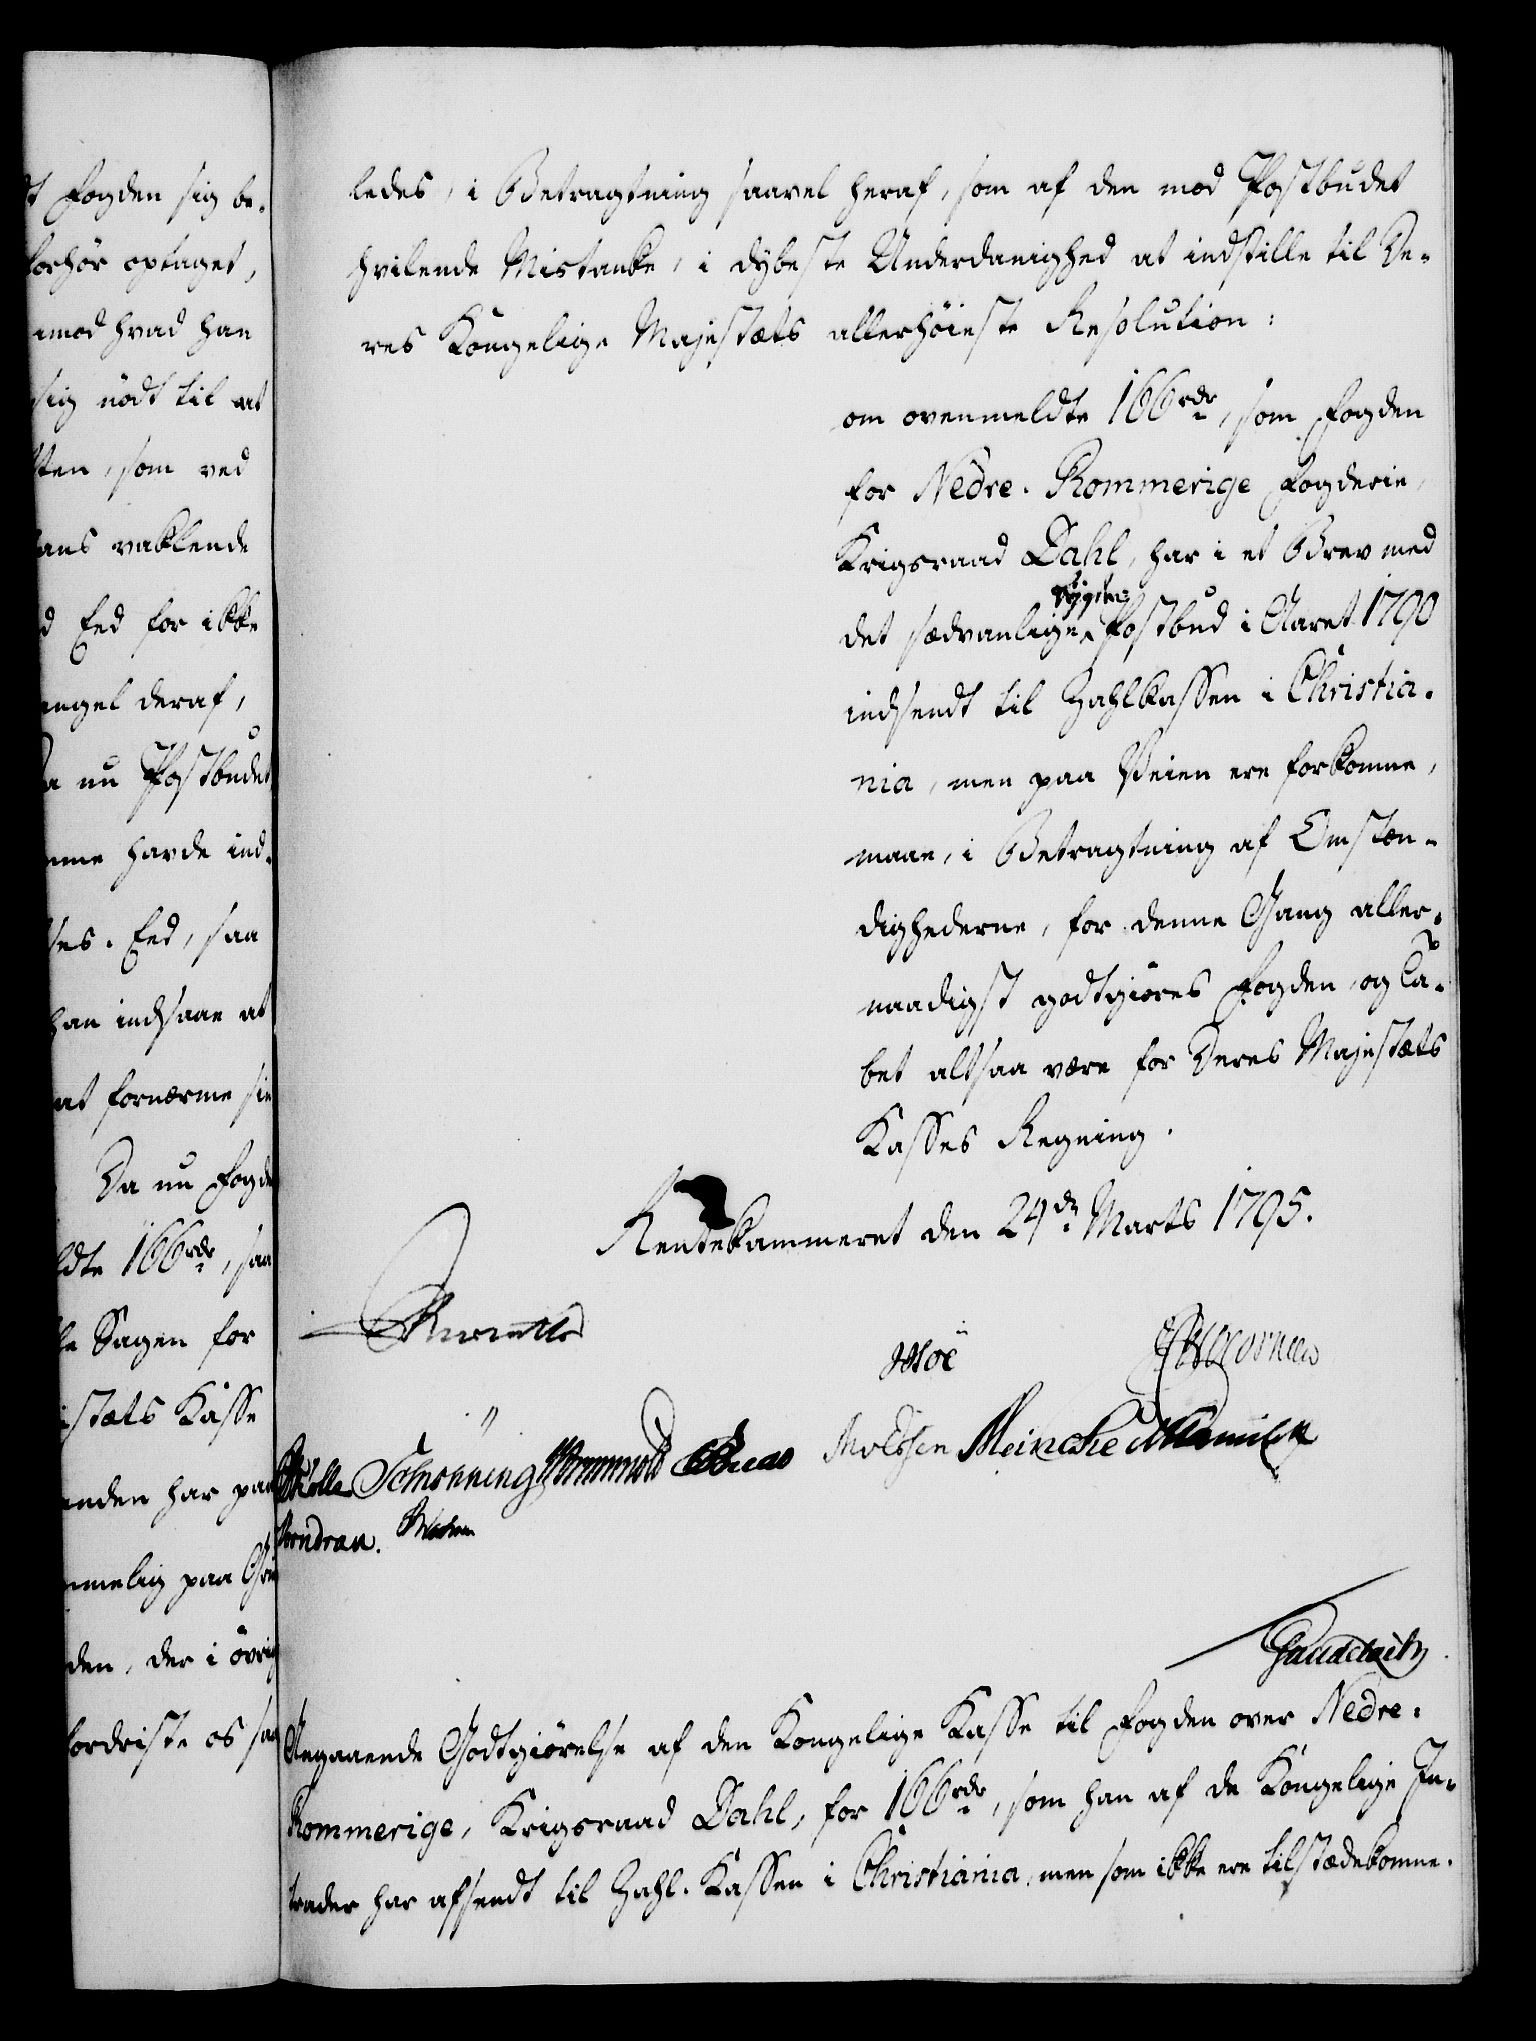 t Fogden sig be-
forhør optaget,
imod hvad han
sig nödt til at
sten, som ved
ans vaklende
d Eed for ikke
angel deraf,
a nu Postbudet
mme havde ind-
ses. Eed, saa
han indsaae at
at fornærme sin
Da nu Fogde
ldte 166 rdr, saa
le Sagen for
istæts Kasse
nden har paa
mmelig paa
den, der i övrig
fordriste os saa
ledes, i Betragtning saavel heraf, som af den mod Postbudet
hvilende Mistanke, i dybeste Underdanighed at indstille til De-
res Kongelige Majestæts allerhöieste Resolution:
om ovenmeldte 166 rdr, som Fogden
for Nedre-Rommerige Fogderie,
Krigsraad Dahl, har i et Brev med
det sædvanlige Bygde- Postbud i Aaret 1790
indsendt til Zahlkassen i Christia-
nia, men paa Veien ere forkomne,
maae, i Betragtning af Omstæn-
dighederne, for denne Gang aller-
naadigst godtgiöres Fogden og Ta-
bet altsaa være for Deres Majestæts
Kasses Regning.
Rentekammeret den 24de Marts 1795.
Schönning Wormskiold Meincke
Angaaende Godtgiörelse af den Kongelige Kasse til Fogden over Nedre-
Rommerige, Krigsraad Dahl, for 166 rdr, som han af de Kongelige In-
trader har afsendt til Zahl-Kassen i Christiania, men som ikke ere tilstædekomne.